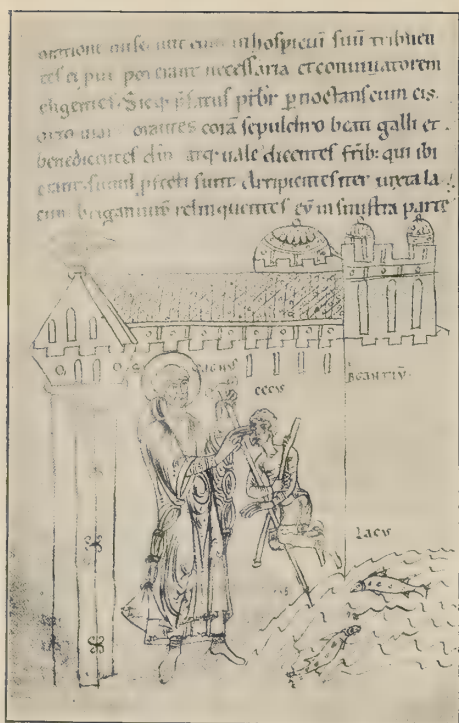 orationi miserunt eum in hospiciū suū tribuen
tes ei que poterant necessaria et comminatorem
eligentes. Sicq; p̄fatus p̄br p̄noctans cum eis.
orto mane orantes corā sepulchro beati galli et
benedicentes dm̄ atq; uale dicentes fr̄ib: qui ibi
erant. simul p̄fecti sunt. Arripientes iter iuxta la
cum briganciū relinquentes eū in sinistra parte
agnus
cecus
Bgantiū.
lacus